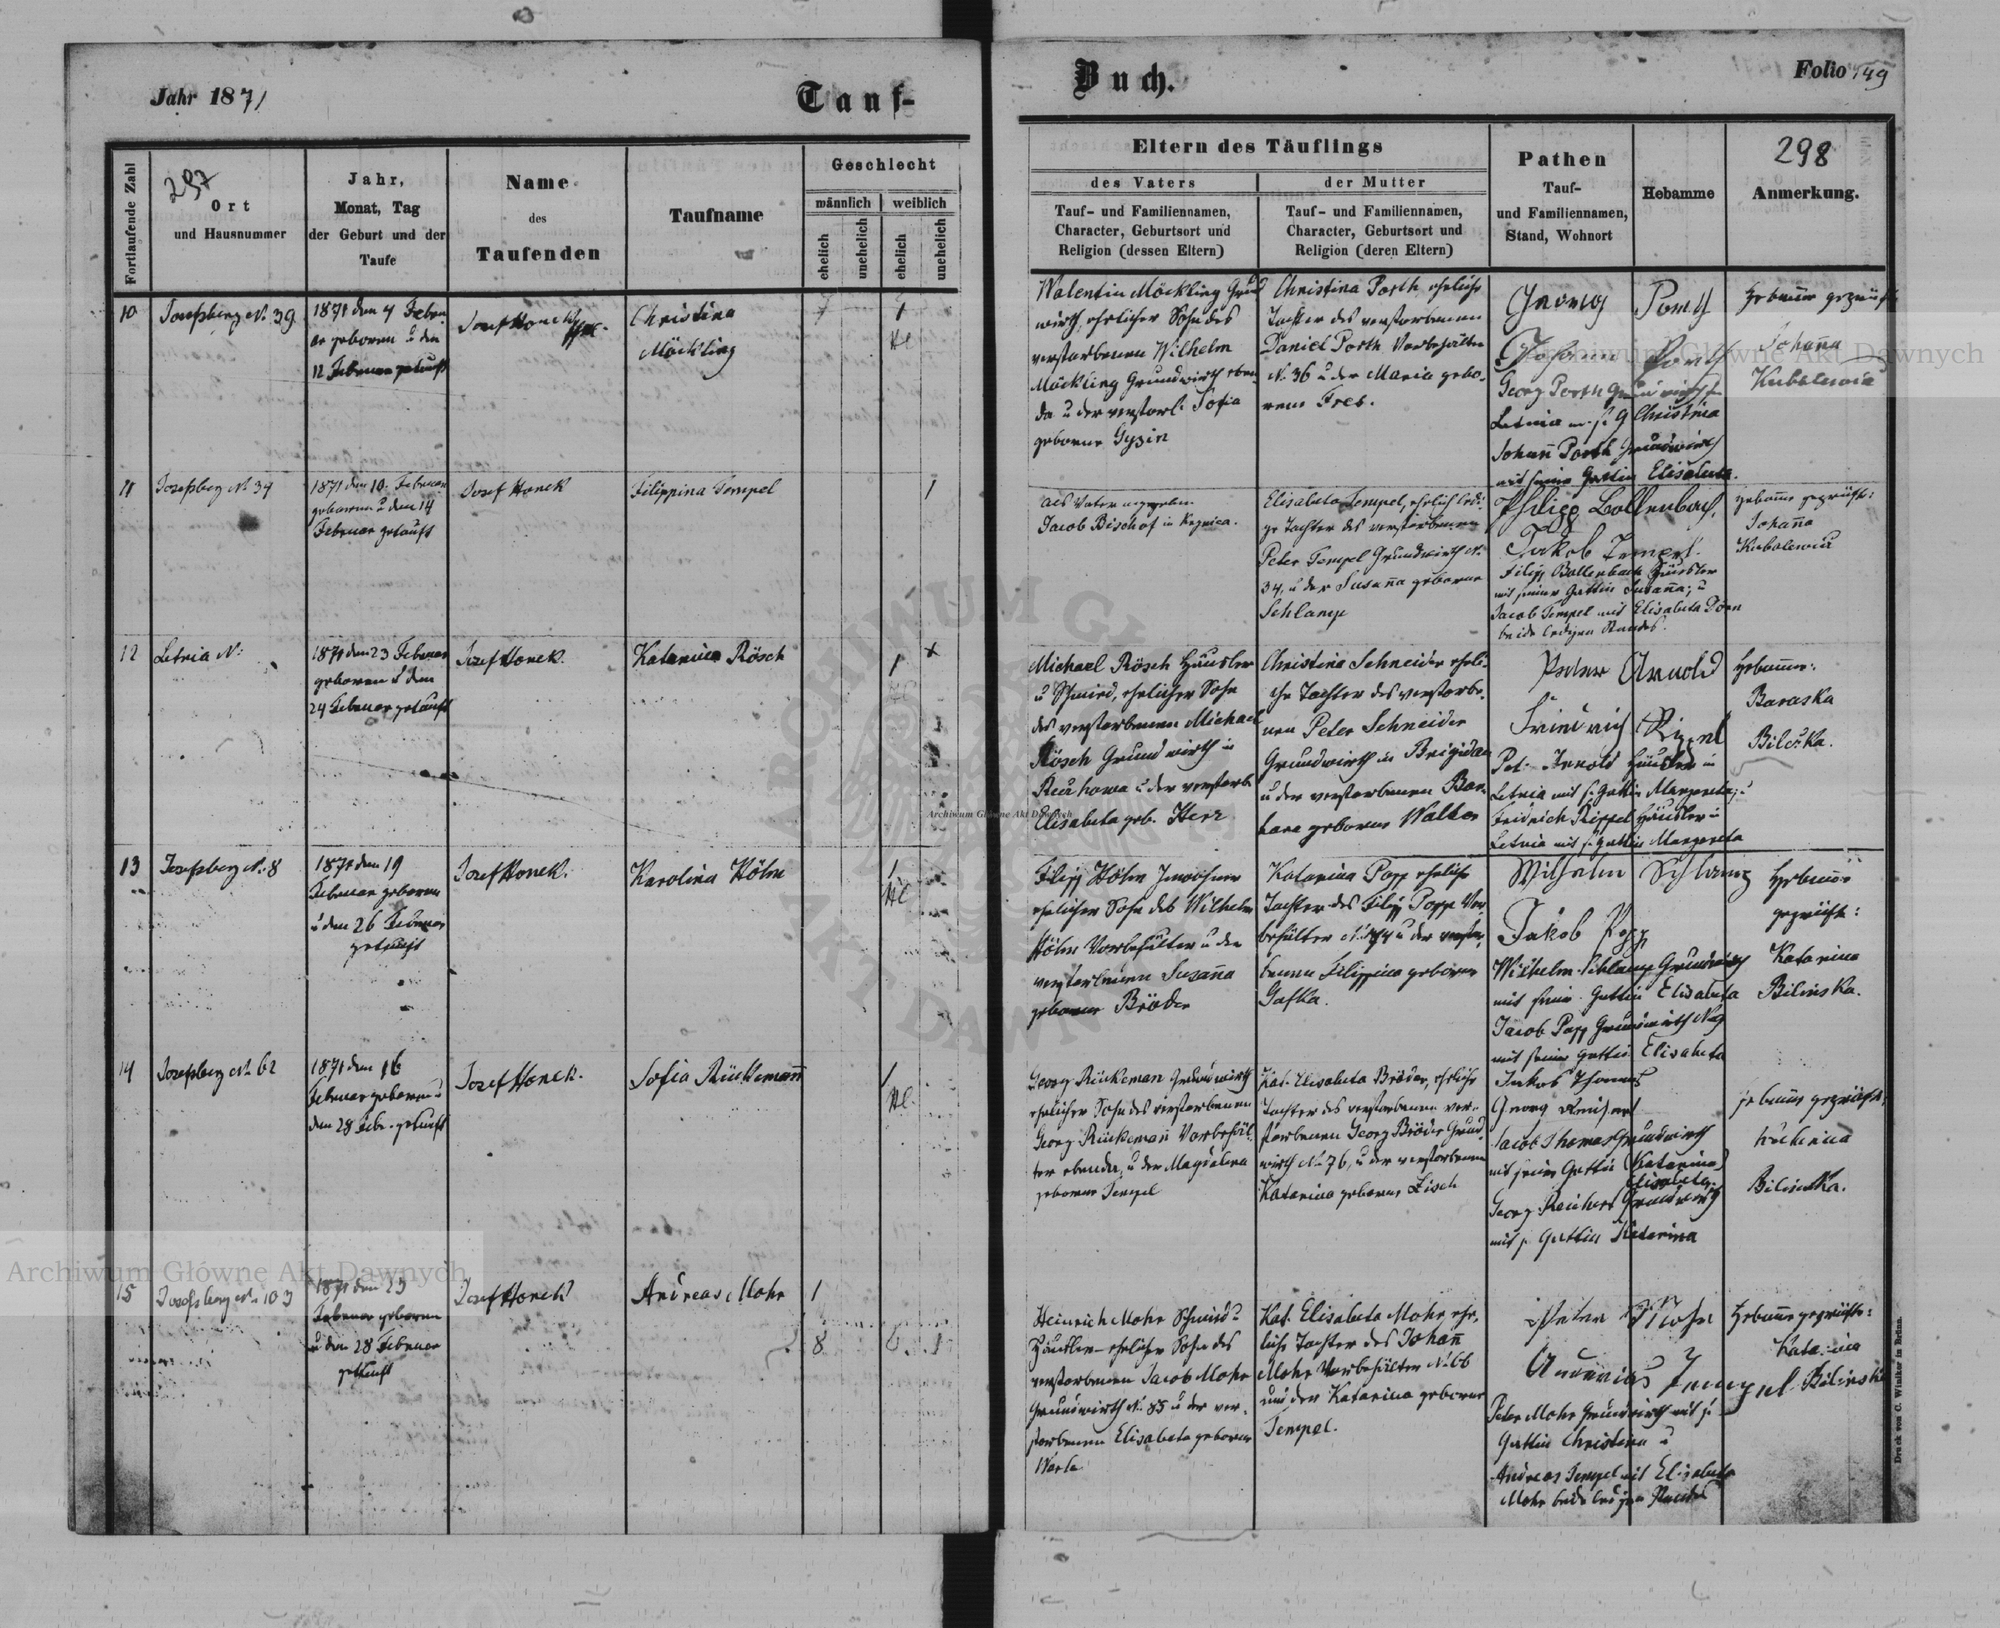 Jahr 1871
Tauf-
Buch.
Folio 149
297
298
Fortlaufende Zahl
Ort
und Hausnummer
Jahr,
Monat, Tag
der Geburt und der
Taufe
Name
des
Taufenden
Taufname
Geschlecht
männlich
weiblich
ehelich
unehelich
ehelich
unehelich
Eltern des Täuflings
des Vaters
der Mutter
Tauf- und Familiennamen,
Character, Geburtsort und
Religion (dessen Eltern)
Tauf- und Familiennamen,
Character, Geburtsort und
Religion (deren Eltern)
Pathen
Tauf-
und Familiennamen,
Stand, Wohnort
Hebamme
Anmerkung.
10
Josefsberg N. 39
1871 den 4 Febru
ar geboren u den
12 Februar getauft
Josef Honek
Christina
Möckling
1
Walentin Möckling Grund
wirth, ehelicher Sohn des
verstorbenen Wilhelm
Möckling Grundwirth eben
da u der verstorb. Sofia
geborne Gyzin
Christina Porth, eheliche
Tochter des verstorbenen
Daniel Porth Vorbehälter
N. 36 u der Maria gebo-
rene Fres.
Georg Porth
Johann Porth
Georg Porth Grundwirth in
Letnia m. s. G Christina
Johann Porth Grundwirth
mit seine Gattin Elisabeta.
Hebamme geprüft
Johanna
11
Josefsberg N 34
1871 den 10. Februar
geboren u den 14
Februar getauft
Josef Honek
Filippina Tempel
1
als Vater angegeben
Jacob Bischof in
Elisabeta Tempel, ehelich ledi-
ge Tochter des verstorbenen
Peter Tempel Grundwirth N.
34, u der Susanna geborne
Schlamp
Philipp Bollenbach,
Jakob Tempel.
Filipp Bollenbach Häusler
mit seiner Gattin Susanna; u
Jacob Tempel mit Elisabeta Dörn
beide ledigen Standes.
Hebamme geprüft:
Johanna
12
Letnia N:
1871 den 23 Februar
geboren u den
24 Februar getauft
Josef Honek.
Katarina Rösch
1
x
Michael Rösch Häusler
u Schmied, ehelicher Sohn
des verstorbenen Michael
Rösch Grundwirth in
u der verstorb
Elisabeta geb. Herz
Christina Schneider eheli-
che Tochter des verstorbe-
nen Peter Schneider
Grundwirth in Brigidau
u der verstorbenen Bar-
bara geborne Walter
Peter Arnold
Fridrich Rippel
Pet. Arnold Häusler in
Letnia mit s. Gattin Margareta; u
Fridrich Rippel Häusler in
Letnia mit s. Gattin Margareta
Hebamme:
Baraska
Bilczka.
13
Josefsberg N. 8
1871 den 19
Februar geboren
u den 26 Februar
getauft
Josef Honek.
Karolina Höhn
1
Filipp Höhn Inwohner
ehelicher Sohn des Wilhelm
Höhn Vorbehälter u der
verstorbenen Susanna
geborne Bröder
Katarina Popp eheliche
Tochter des Filipp Popp Vor
behälter N. 44 u der verstor
benen Filippina geborne
Gafka.
Wilhelm Schlamp
Jakob Popp
Wilhelm Schlamp Grundwirth
mit seine Gattin Elisabeta
Jacob Popp Grundwirth
mit seine Gattin Elisabeta
Hebamme
geprüft:
Katarina
Bilinska.
14
Josefsberg N. 62
1871 den 16
Februar geboren u
den 28 Febr. getauft
Josef Honek.
Sofia Rückemann
1
Georg Rückeman Grundwirth
ehelicher Sohn des verstorbenen
Georg Rückemann Vorbehäl-
ter ebenda, u der Magdalena
geborne Tempel
Kat. Elisabeta Bröder, eheliche
Tochter des verstorbenen ver-
storbenen Georg Bröder Grund
wirth N. 76, u der verstorbenen
Katarina geborne Zisch
Jakob Thomas
Georg Reichert
Jacob Thomas Grundwirth
mit seine Gattin (Katarina)
Elisabeta.
Georg Reichert Grundwirth
mit s Gattin Katarina
Hebamme geprüft:
Bilinska.
15
Josefsberg N. 103
1871 den 23
Februar geboren
u den 28 Februar
getauft
Josef Honek
Andreas Mohr
1
8
Heinrich Mohr Schmied u
Häusler - ehelicher Sohn des
verstorbenen Jacob Mohr
Grundwirth N. 85 u der ver-
storbenen Elisabeta geborne
Kat. Elisabeta Mohr, ehe-
liche Tochter des Johann
Mohr Vorbehälter N. 66
und der Katarina geborne
Tempel.
Peter Mohr
Andreas Tempel
Peter Mohr Grundwirth mit s
Gattin Christina u
Andreas Tempel mit Elisabeta
Mohr beide ledigen Standes
Hebamme geprüft:
Katarina
Bilinska
Archiwum Główne Akt Dawnych
Archiwum Główne Akt Dawnych
Archiwum Główne Akt Dawnych
Druck von C. Winiker in Brünn.